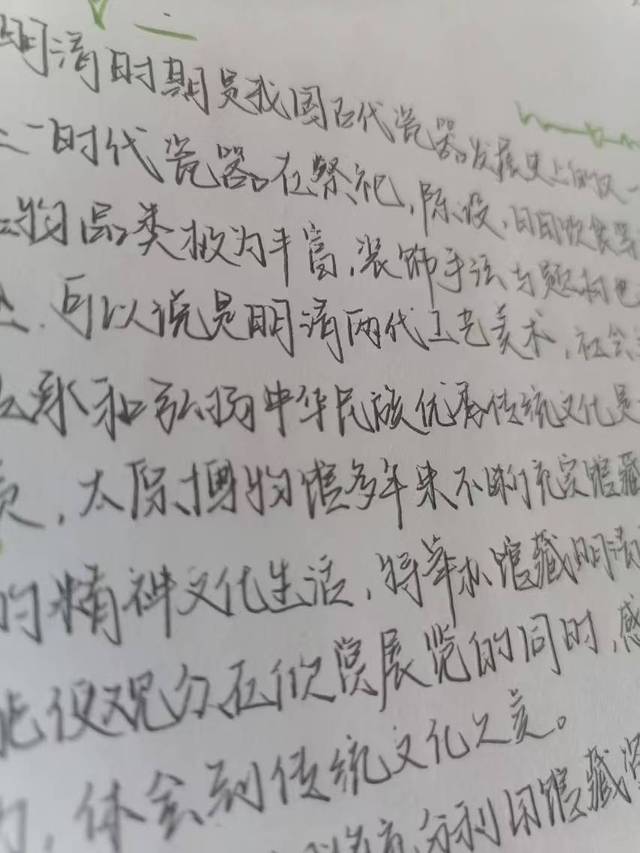 明清时期是我国古代瓷器发展史上的又一
时代瓷器在祭祀,陈设,日用饮食等
物品类极为丰富,装饰手法与题材也
可以说是明清两代工艺美术,社会
承和弘扬中华民族优秀传统文化是
责,太原博物馆多年来不断充实馆藏
的精神文化生活,特举办馆藏明清
能使观众在欣赏展览的同时,感
力,体会到传统文化之美。
充分利用馆藏资